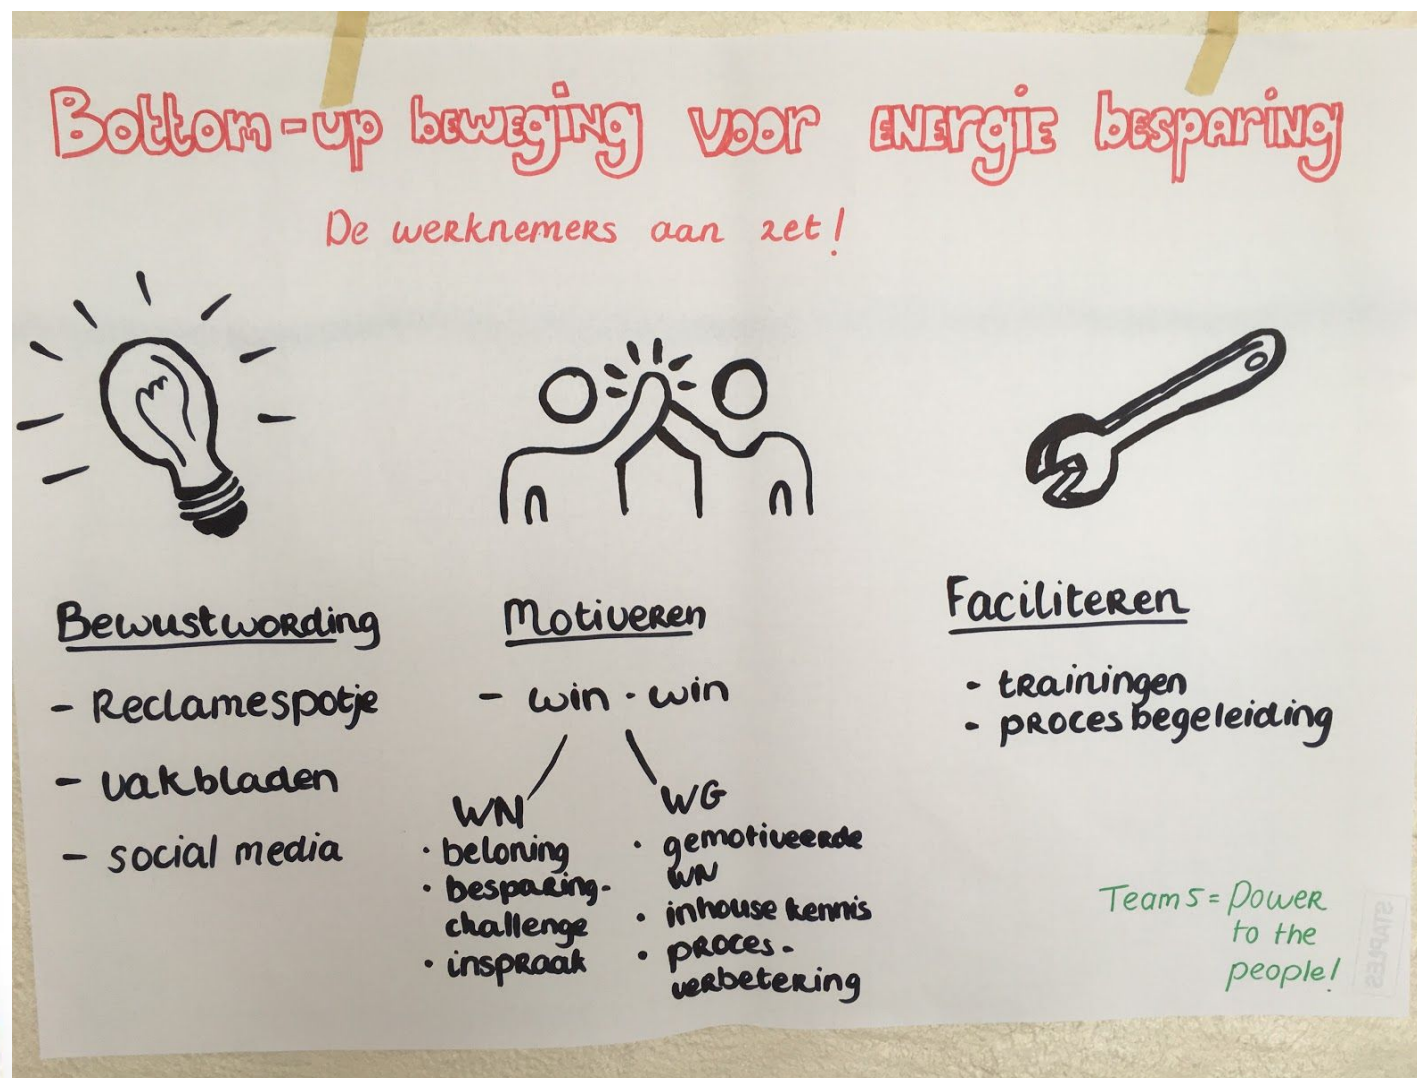 Bottom-up beweging voor energie besparing
De werknemers aan zet!
Bewustwording
- Reclamespotje
- vakbladen
- social media
Motiveren
- win - win
WN
• beloning
• besparing-
challenge
• inspraak
WG
• gemotiveerde
WN
• inhouse kennis
• proces-
verbetering
Faciliteren
- trainingen
- procesbegeleiding
Team 5 = Power
to the
people!
STAPLES